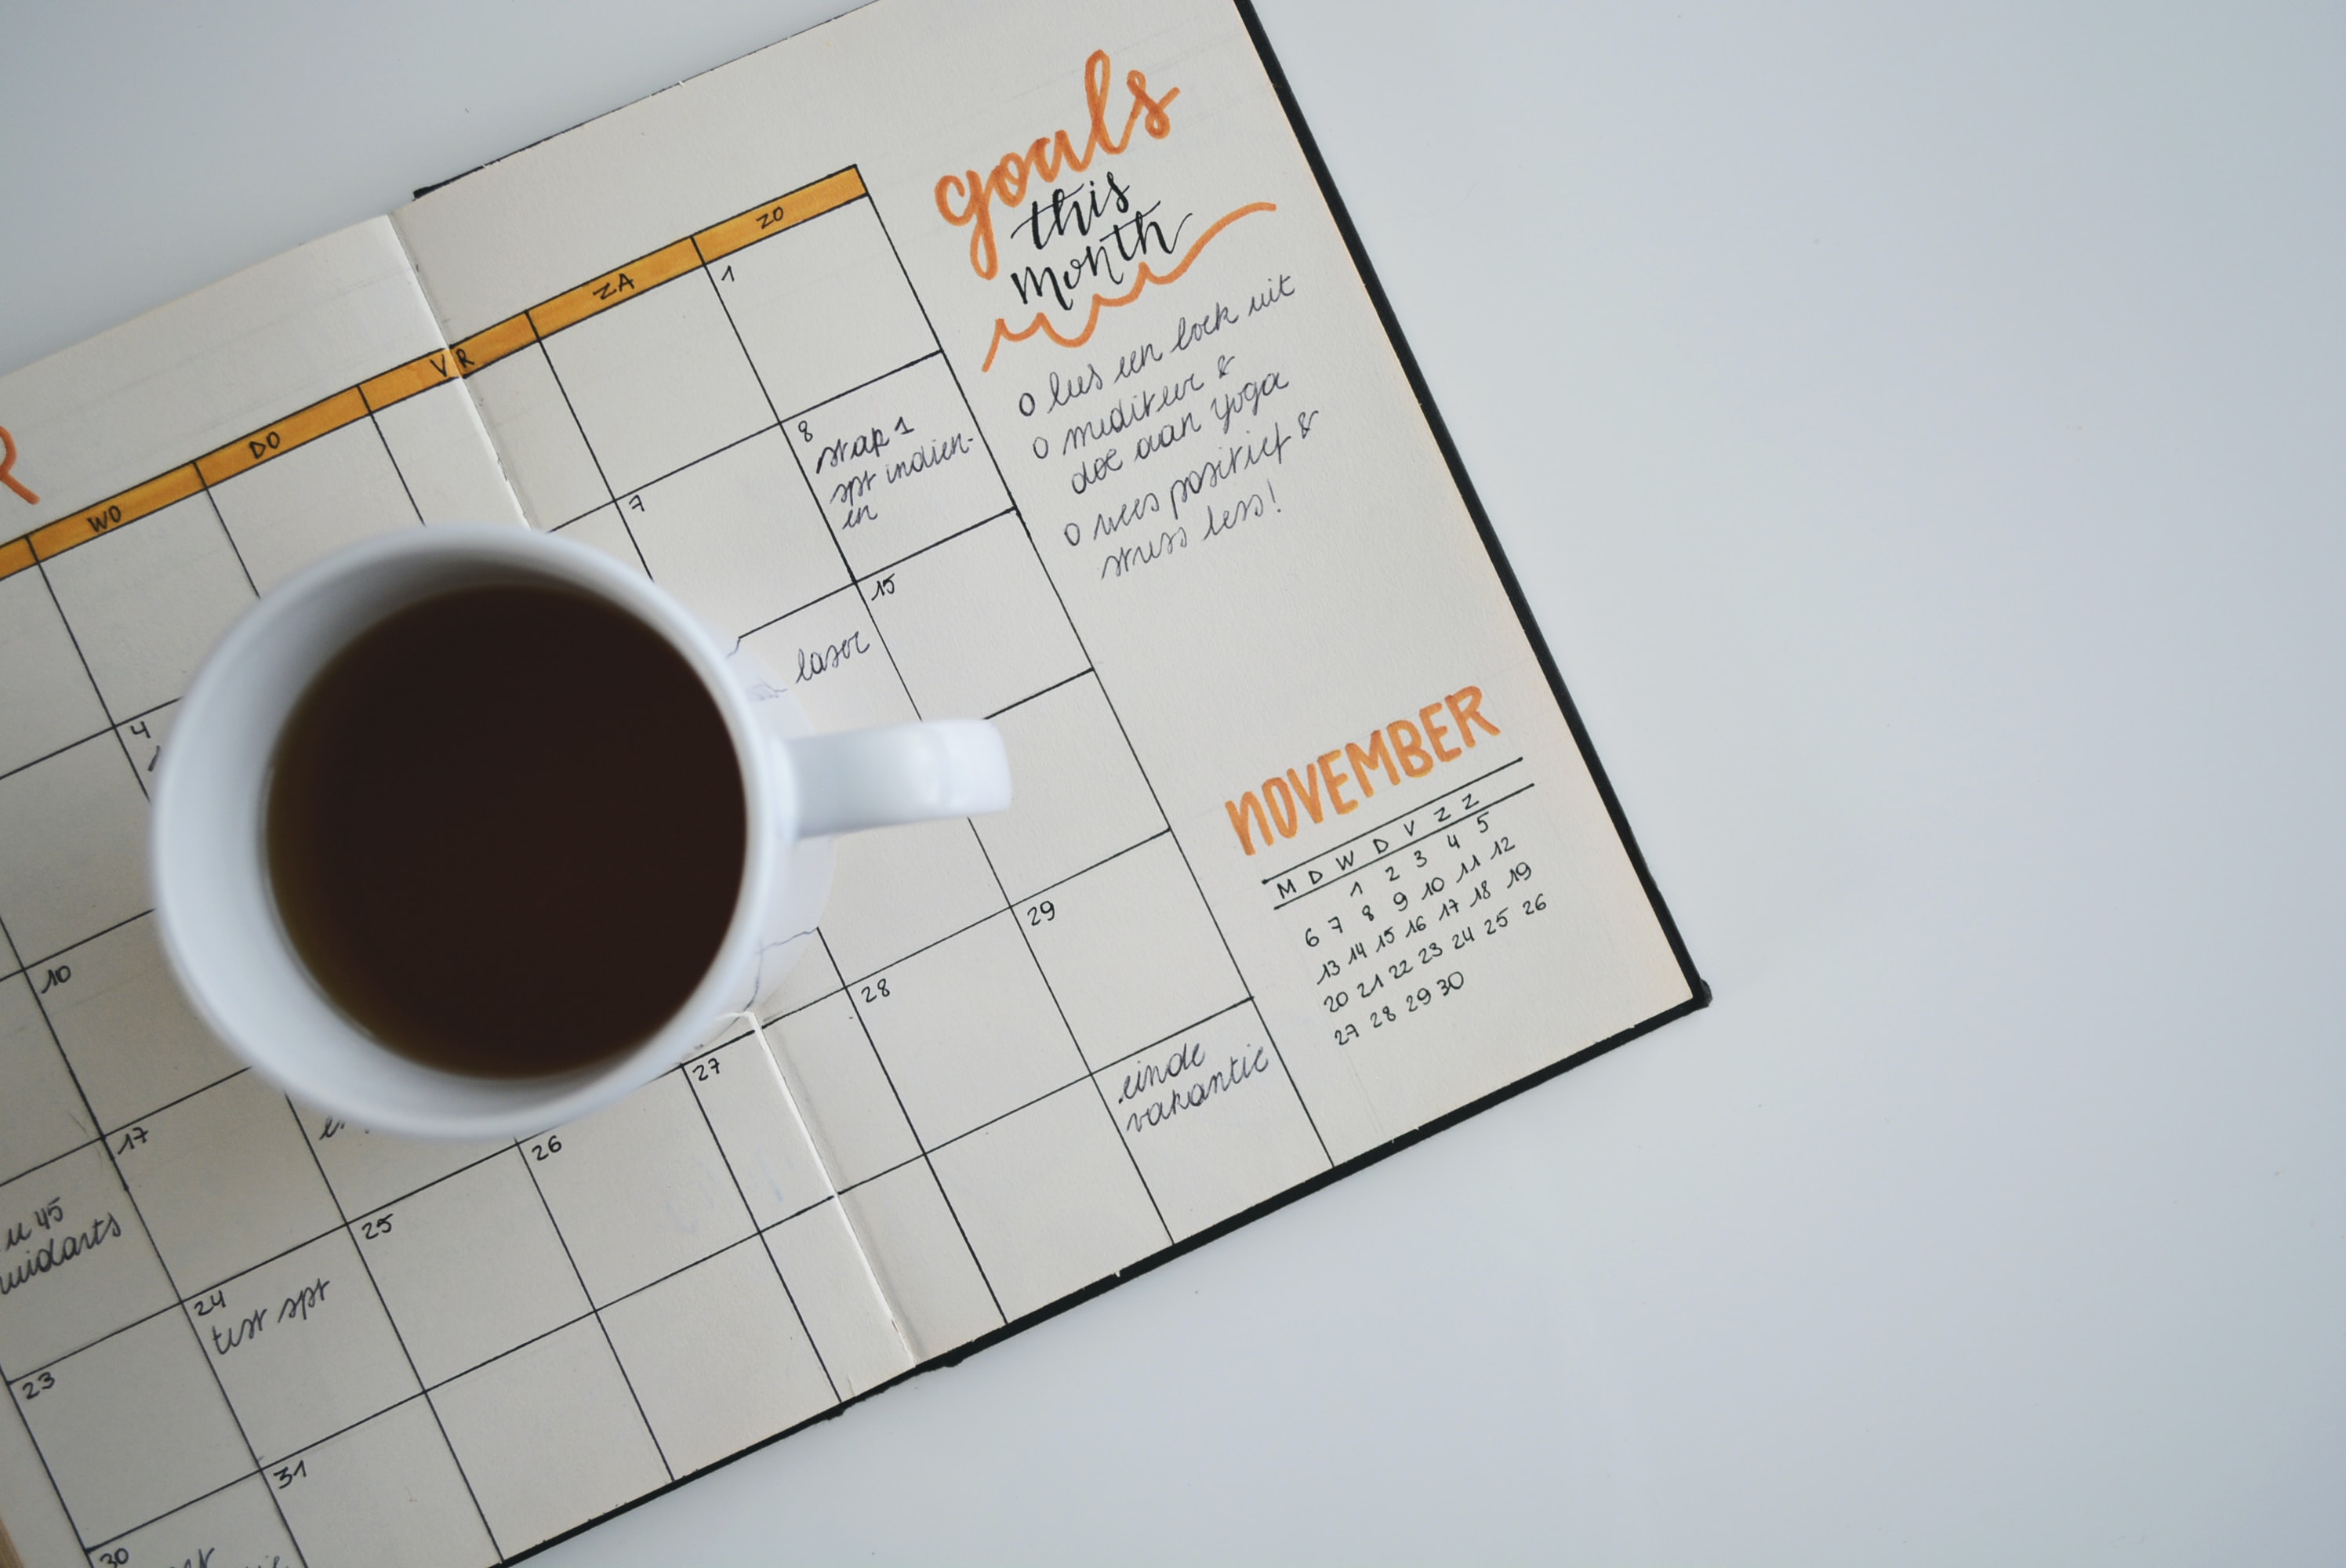 R
WO DO VR ZA ZO
1
4
7
8
stap 1
spt indien-
en
10
laser
15
17
u 45
23
24
test spt
25
26
27
28
29
30
31
einde
vakantie
goals
this
month
o lees een boek uit
o mediteer &
doe aan yoga
o wees positief &
stress less!
NOVEMBER
M D W D V Z Z
1 2 3 4 5
6 7 8 9 10 11 12
13 14 15 16 17 18 19
20 21 22 23 24 25 26
27 28 29 30